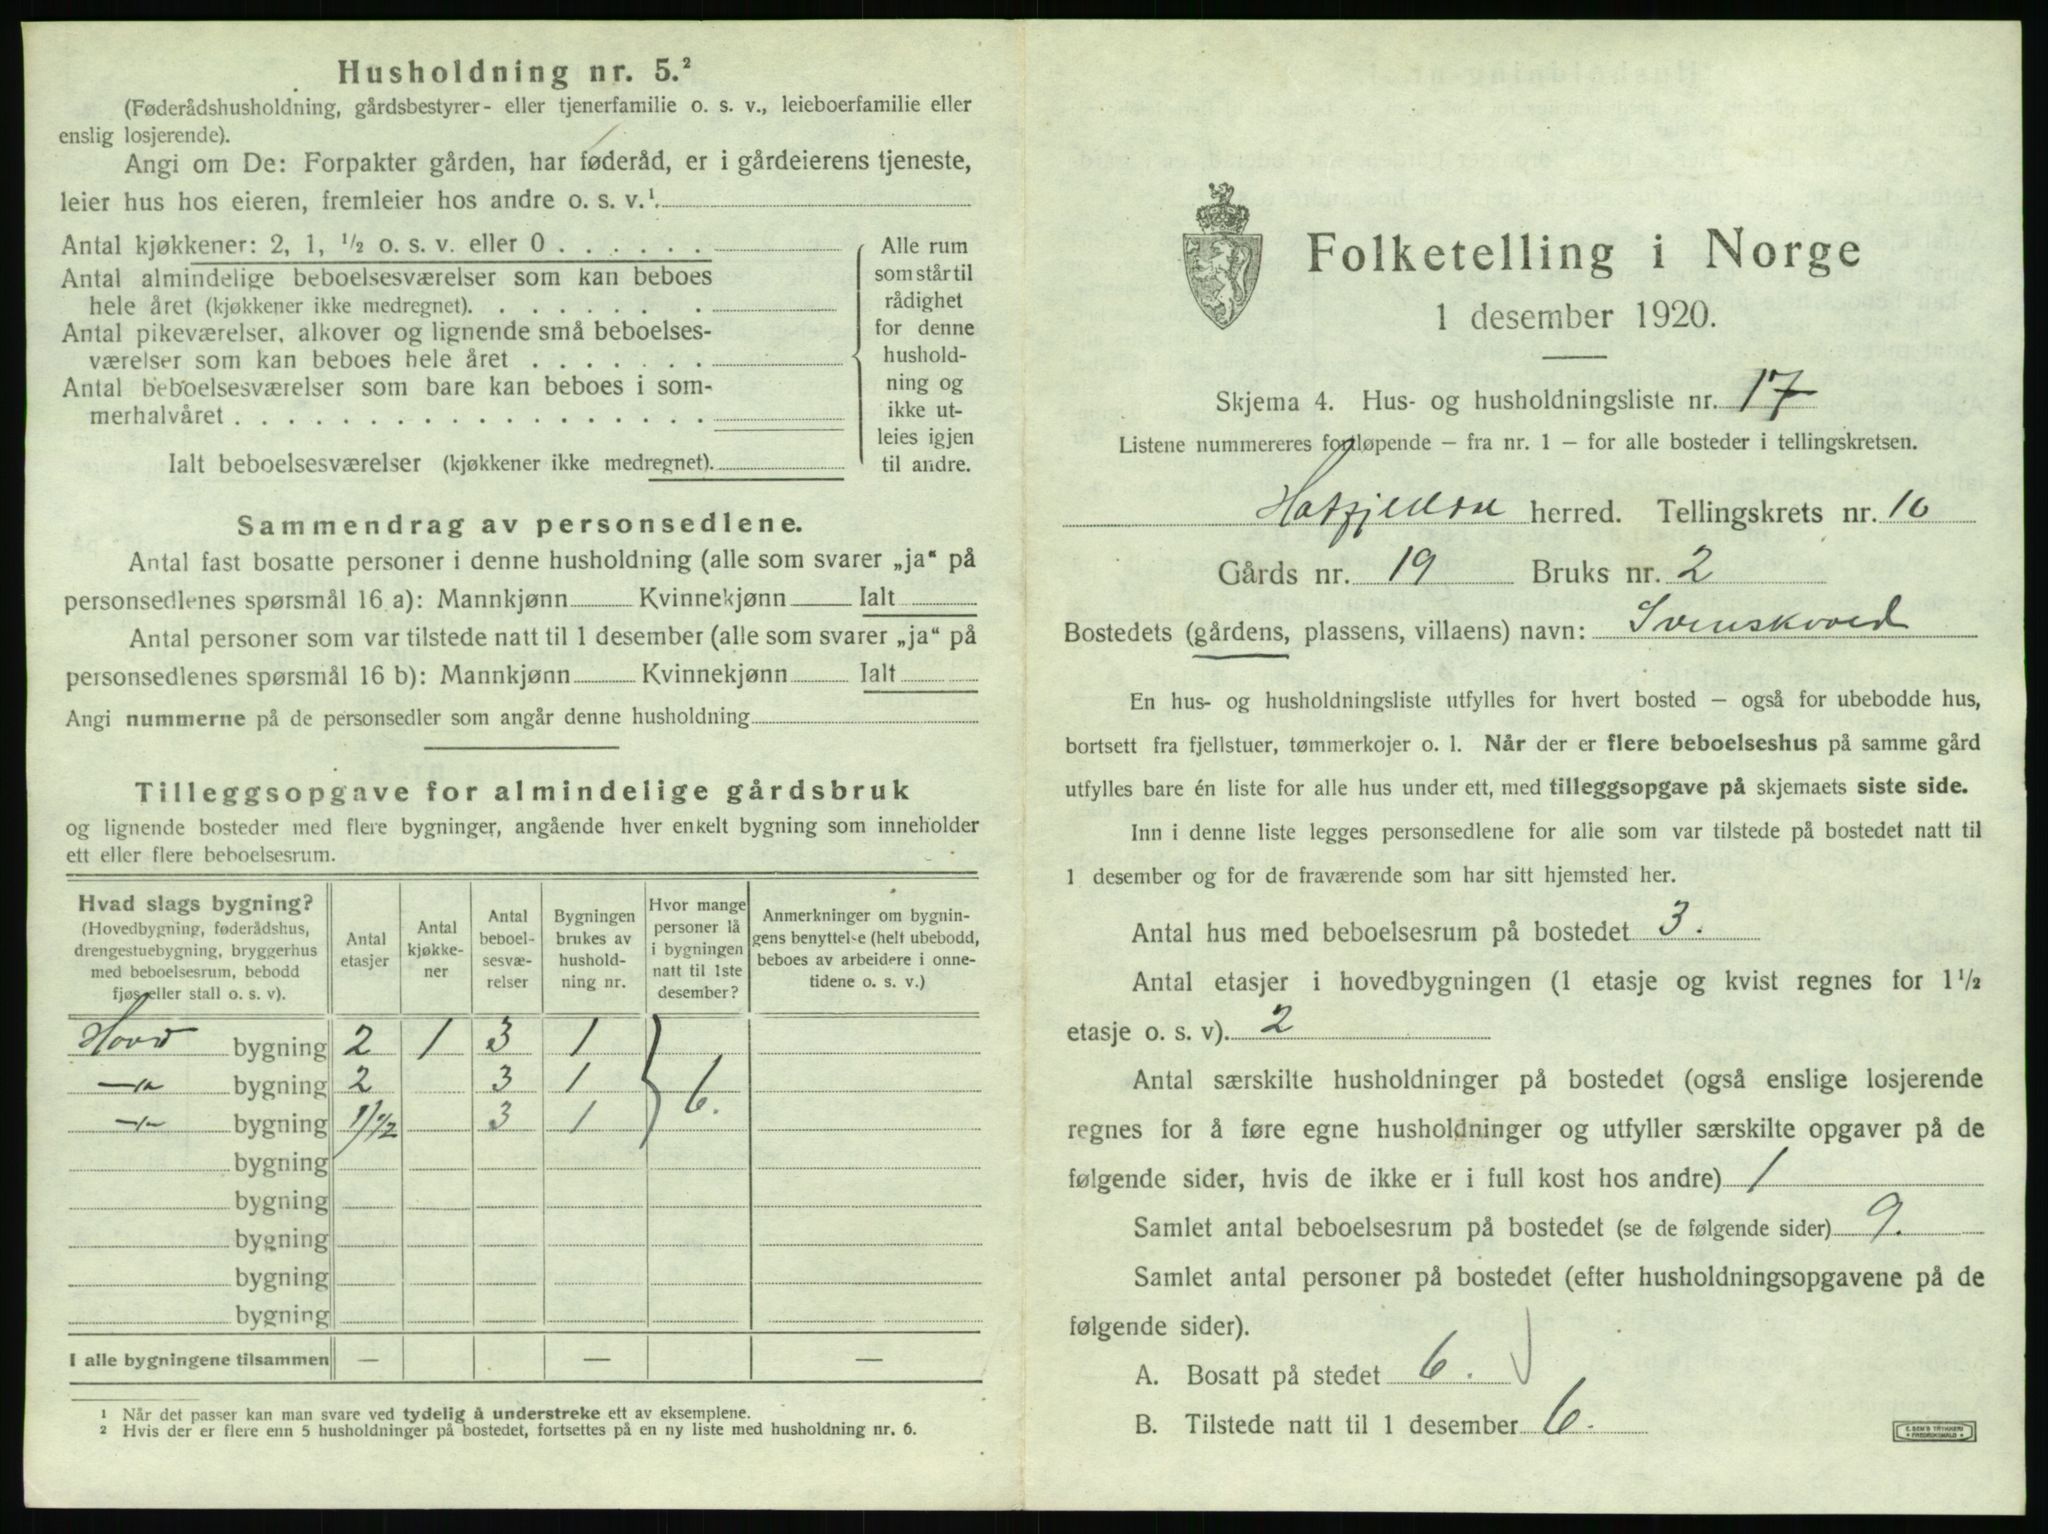 Husholdning nr. 5.²
(Føderådshusholdning, gårdsbestyrer- eller tjenerfamilie o. s. v., leieboerfamilie eller
enslig losjerende).
Angi om De: Forpakter gården, har føderåd, er i gårdeierens tjeneste,
leier hus hos eieren, fremleier hos andre o. s. v.¹
Antal kjøkkener: 2, 1, ½ o. s. v. eller 0 . . . . . .
Antal almindelige beboelsesværelser som kan beboes
hele året (kjøkkener ikke medregnet). . . . . . . .
Antal pikeværelser, alkover og lignende små beboelses-
værelser som kan beboes hele året . . . . . . .
Antal beboelsesværelser som bare kan beboes i som-
merhalvåret . . . . . . . . . . . . . . . . . .
Ialt beboelsesværelser (kjøkkener ikke medregnet).
Alle rum
som står til
rådighet
for denne
hushold-
ning og
ikke ut-
leies igjen
til andre.
Sammendrag av personsedlene.
Antal fast bosatte personer i denne husholdning (alle som svarer „ja“ på
personsedlenes spørsmål 16 a): Mannkjønn Kvinnekjønn Ialt
Antal personer som var tilstede natt til 1 desember (alle som svarer „ja“ på
personsedlenes spørsmål 16 b): Mannkjønn Kvinnekjønn Ialt
Angi nummerne på de personsedler som angår denne husholdning
Tilleggsopgave for almindelige gårdsbruk
og lignende bosteder med flere bygninger, angående hver enkelt bygning som inneholder
ett eller flere beboelsesrum.
Hvad slags bygning?
(Hovedbygning, føderådshus,
drengestuebygning, bryggerhus
med beboelsesrum, bebodd
fjøs eller stall o. s. v).
Antal
etasjer
Antal
kjøkke-
ner
Antal
beboel-
sesvæ-
relser
Bygningen
brukes av
hushold-
ning nr.
Hvor mange
personer lå
i bygningen
natt til 1ste
desember?
Anmerkninger om bygnin-
gens benyttelse (helt ubebodd,
beboes av arbeidere i onne-
tidene o. s. v.)
Hovd bygning 2 1 3 1
—"— bygning 2 3 1 6.
—"— bygning 1 1/2 3 1
bygning
bygning
bygning
bygning
bygning
I alle bygningene tilsammen — — —
¹ Når det passer kan man svare ved tydelig å understreke ett av eksemplene.
² Hvis der er flere enn 5 husholdninger på bostedet, fortsettes på en ny liste med husholdning nr. 6.
Folketelling i Norge
1 desember 1920.
Skjema 4. Hus- og husholdningsliste nr. 17
Listene nummereres fortløpende — fra nr. 1 — for alle bosteder i tellingskretsen.
Hatfjelldal herred. Tellingskrets nr. 10
Gårds nr. 19 Bruks nr. 2
Bostedets (gårdens, plassens, villaens) navn: Svenskvold
En hus- og husholdningsliste utfylles for hvert bosted — også for ubebodde hus,
bortsett fra fjellstuer, tømmerkojer o. l. Når der er flere beboelseshus på samme gård
utfylles bare én liste for alle hus under ett, med tilleggsopgave på skjemaets siste side.
Inn i denne liste legges personsedlene for alle som var tilstede på bostedet natt til
1 desember og for de fraværende som har sitt hjemsted her.
Antal hus med beboelsesrum på bostedet 3.
Antal etasjer i hovedbygningen (1 etasje og kvist regnes for 1½
etasje o. s. v). 2
Antal særskilte husholdninger på bostedet (også enslige losjerende
regnes for å føre egne husholdninger og utfyller særskilte opgaver på de
følgende sider, hvis de ikke er i full kost hos andre) 1
Samlet antal beboelsesrum på bostedet (se de følgende sider) 9.
Samlet antal personer på bostedet (efter husholdningsopgavene på de
følgende sider).
A. Bosatt på stedet 6.
B. Tilstede natt til 1 desember 6.